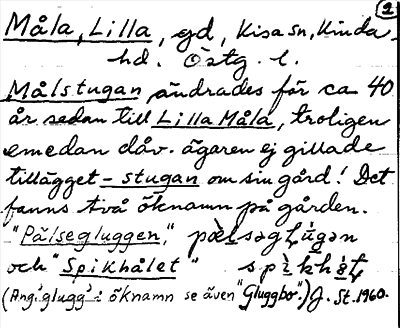 2
Måla, Lilla, gd, Kisa sn, Kinda
hd. Östg. l.
Målstugan ändrades för ca 40
år sedan till Lilla Måla, troligen
emedan dåv. ägaren ej gillade
tillägget -stugan om sin gård! Det
fanns två öknamn på gården.
"Pälsegluggen,"
och "Spikhålet"
(Ang. 'glugg' i öknamn se även "Gluggbo".) J. St. 1960.